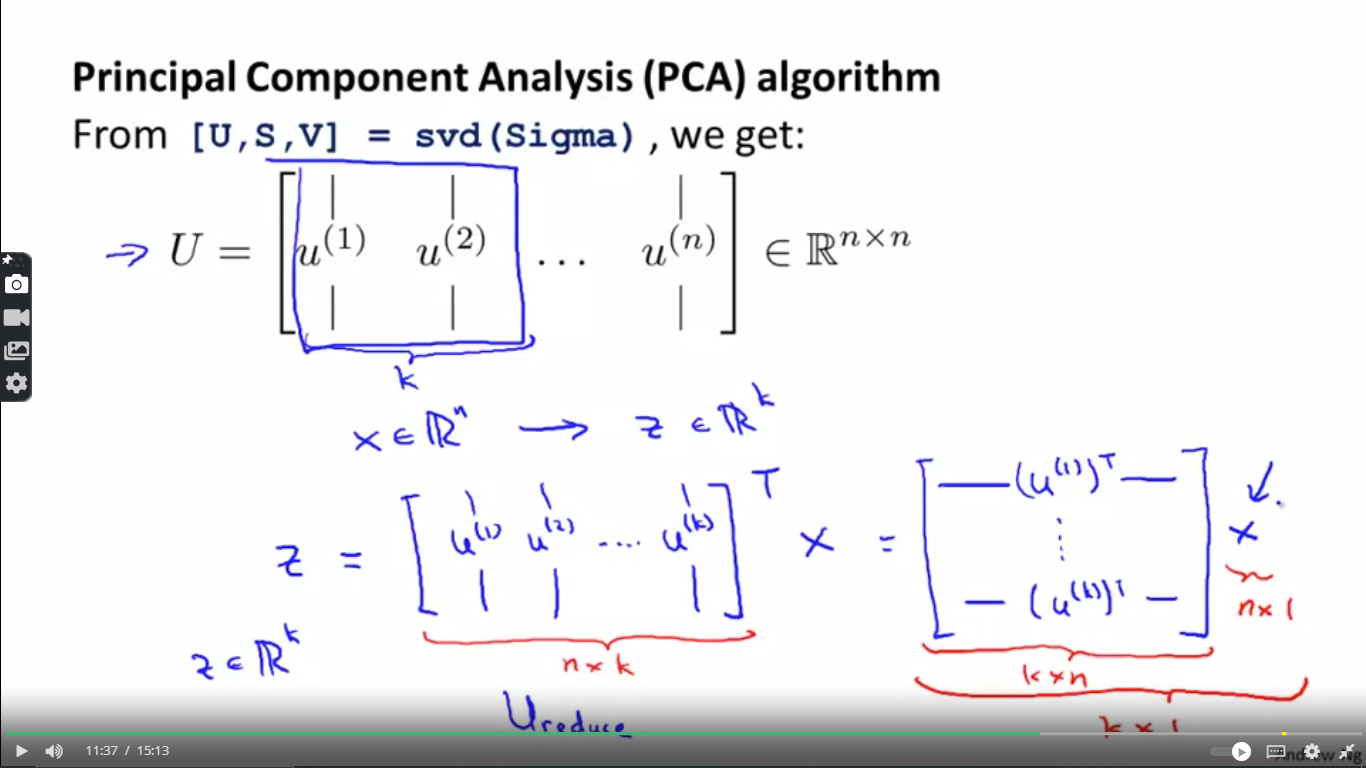 Principal Component Analysis (PCA) algorithm
From [U,S,V] = svd(Sigma) , we get:
→ U = [ u^(1) u^(2) ... u^(n) ] ∈ ℝ^{n×n}
k
x ∈ ℝ^n → z ∈ ℝ^k
z = [ u^(1) u^(2) .... u^(k) ]^T x = [ — (u^(1))^T — ⋮ — (u^(k))^T — ] x
n×1
z ∈ ℝ^k
n×k
k×n
Ureduce
k×1
11:37 / 15:13
Andrew Ng